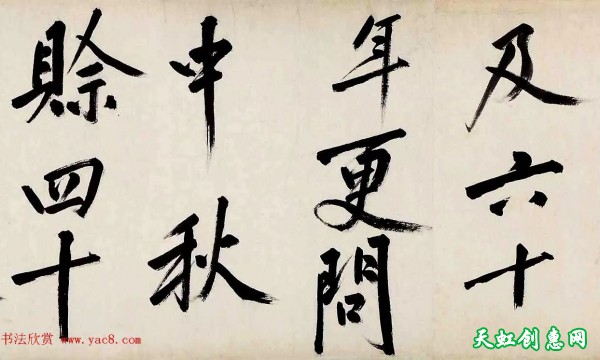 及六十
年更問
中秋
賖四十
书法欣赏 www.yac8.com
天虹创惠网